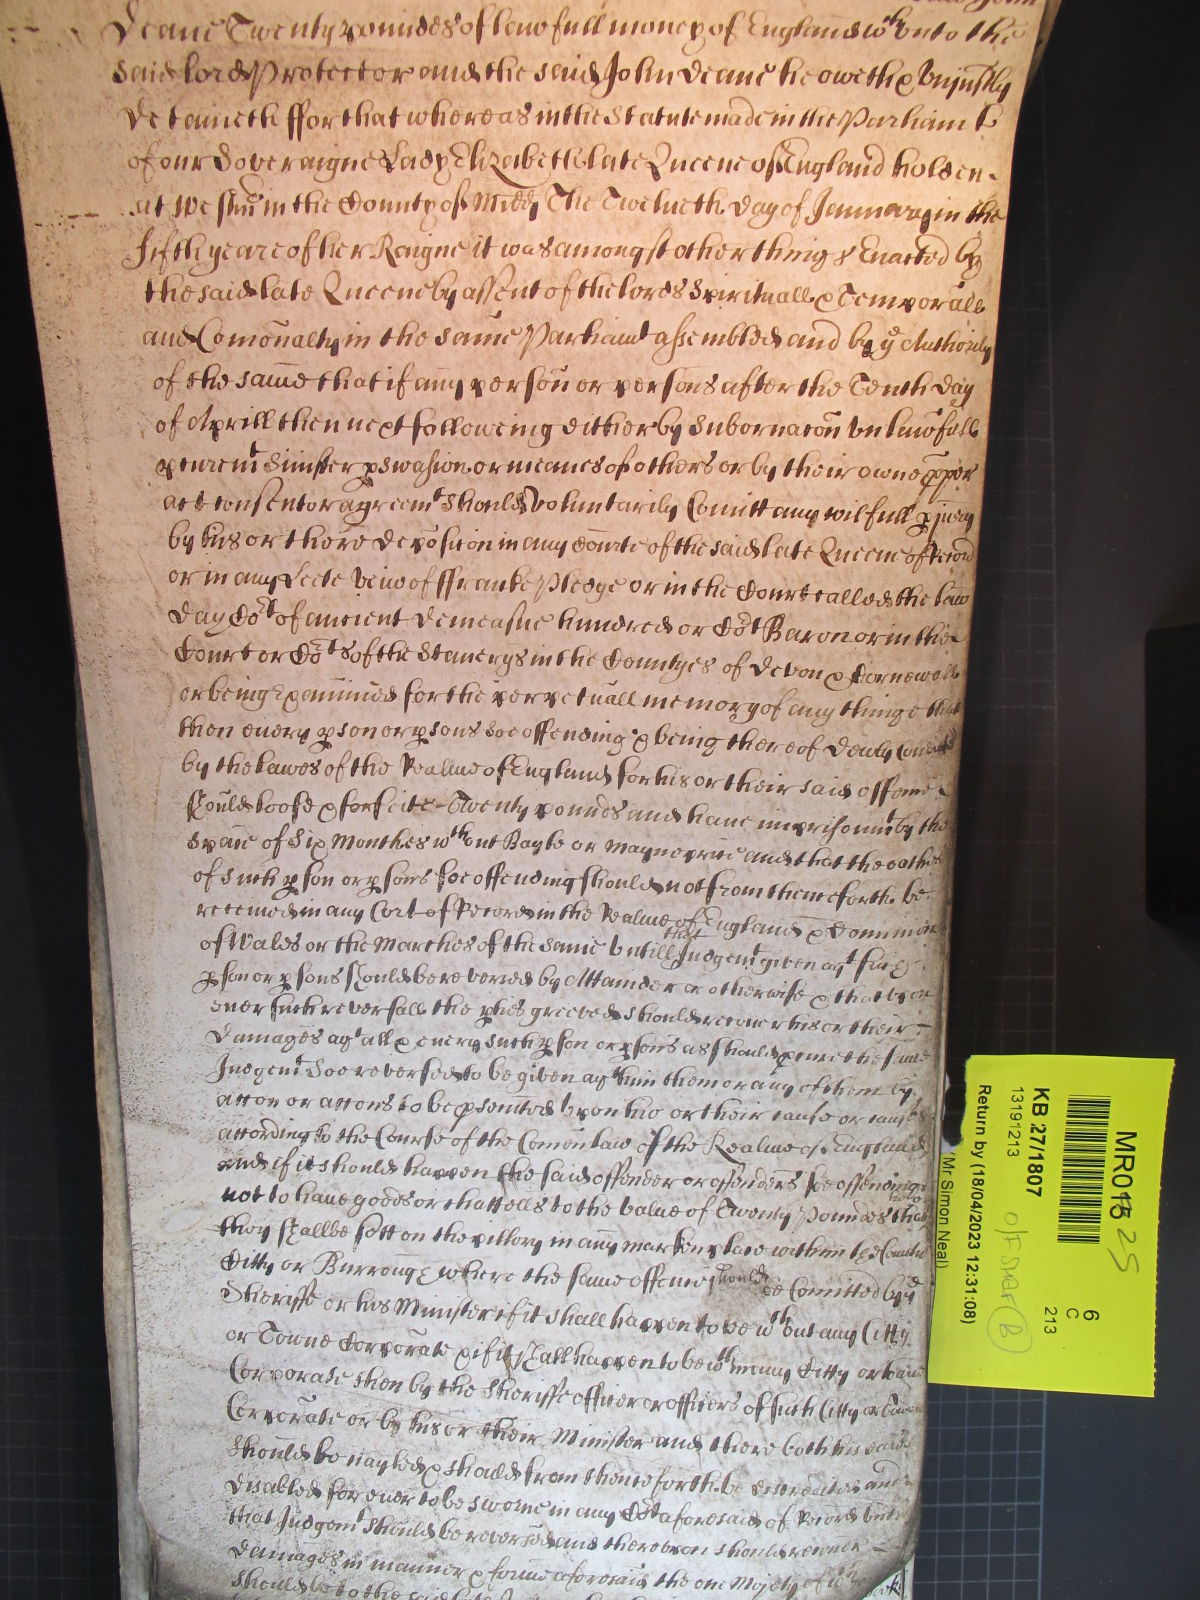 Deane Twenty poundes of lawfull money of England wch onto the
said lord Protector and the said John Deane he oweth & Unjustly
Detaineth ffor that whereas in the Statute made in the Parliamt
of our Soveraigne Lady Elizabeth late Queene of England holden
at Westmr in the County of Midd The Twelueth day of January in the
fifth yeare of her Raigne it was amongst other things Enacted by
the said late Queene by assent of the lords Spirituall & Temporall
and Comonalty in the same Parliamt assembled and by ye Authority
of the same that if any person or persons after the Tenth day
of Aprill then next following either by Subornacon unlawfull
procuremt Sinister pswasion or meanes of others or by their owne pper
act consent or agreemt should voluntarily Comitt any wilfull pjury
by his or there deposicion in any Courte of the said late Queene of Record
or in any Leete veiw of ffranke Pledge or in the Court called the law
day Cort of antient demeasne hundred or Cort Baron or in the
Court or Corts of the Stanerys in the Countyes of Devon & Cornewall
or being Examined for the perpetuall memory of any thinge that
then every pson or psons soe offending & being thereof duely
by the lawes of the Realme of England for his or their said offence
should loose & forfeite Twenty pounds and have imprisonmt by the
space of Six Monthes wthout Bayle or maynprise and that the oathe
of such pson or psons soe offending should not from thenceforth be
received in any Cort of Record in the Realme of England & Dominion
of Wales or the Marches of the same untill that Judgemt given agt such
pson or psons should be reversed by Attainder or otherwise & that upon
every such reversall the pties greeved should recover his or their
Damages agt all & every such pson or psons as should pcure the same
Judgemt Soe reversed to be given agt him them or any of them by
accon or accons to be psented upon his or their case or cases
according to the Course of the Comon law of the Realme of England
and if it should happen the said offender or offenders soe offending
not to have goods or chattells to the value of Twenty Poundes that
they shalbe sett on the pillory in any markett place within the Countie
Citty or Burrough where the same offence should be Comitted by ye
Sheriffe or his Minister if it shall happen to be wthout any Citty
or Towne Corporate & if it shall happen to be wthin any Citty or towne
Corporate then by the Sheriffe officer or officers of such Citty or towne
Corporate or by his or their Minister and there both his eares
should be nayled & should from thenceforth be discredited and
disabled for ever to be sworne in any Cort aforesaid of Record untill
that Judgemt should be reversed and thereupon should recover
damages in manner & forme aforesaid the one Mojety of wch
should be to the said late
MR018
25
6
C
213
KB 27/1807
13191213
Return by (18/04/2023 12:31:08)
(Mr Simon Neal)
B